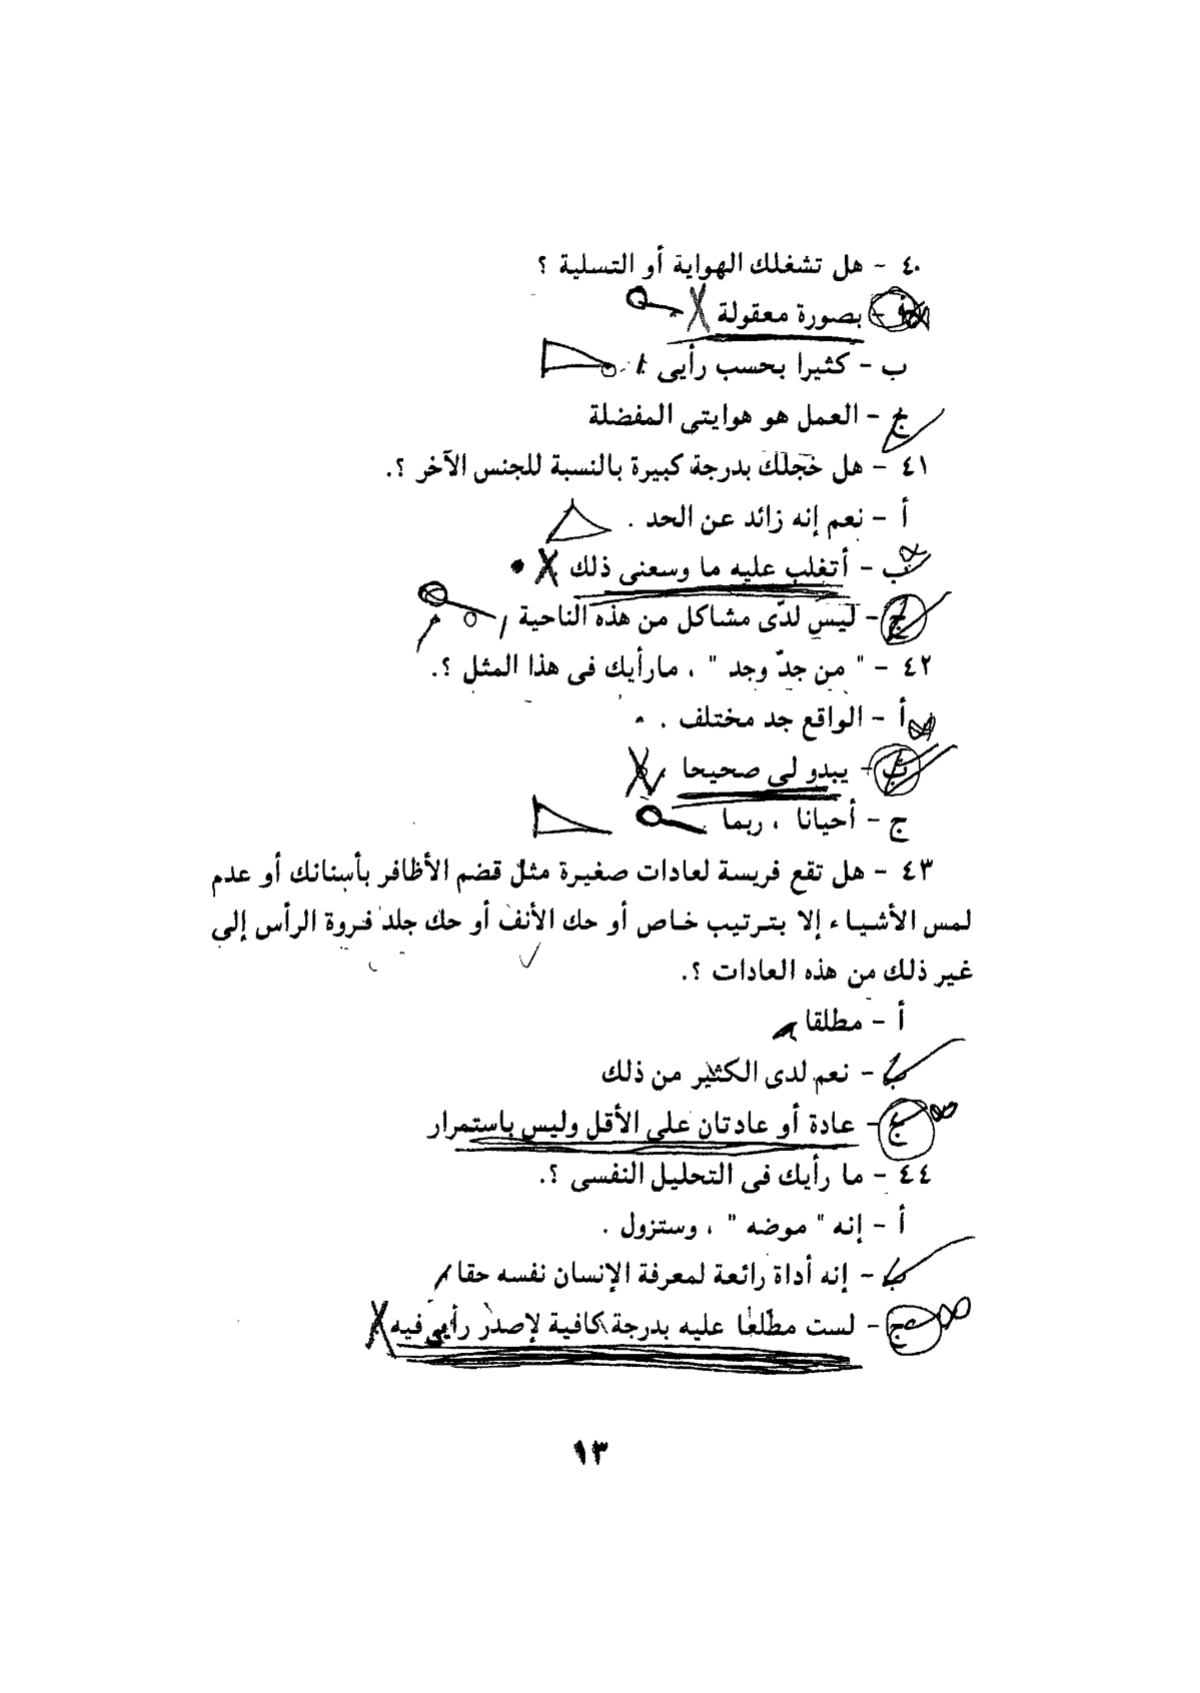 ٤٠ - هل تشغلك الهواية أو التسلية ؟
بصورة معقولة
ب - كثيرا بحسب رأيى
ج - العمل هو هوايتى المفضلة
٤١ - هل خجلك بدرجة كبيرة بالنسبة للجنس الآخر ؟.
أ - نعم إنه زائد عن الحد .
ب - أتغلب عليه ما وسعنى ذلك
ج - ليس لدّى مشاكل من هذه الناحية
٤٢ - " من جدّ وجد " ، مارأيك فى هذا المثل ؟.
أ - الواقع جد مختلف .
ب - يبدو لى صحيحا
ج - أحيانا ، ربما
٤٣ - هل تقع فريسة لعادات صغيرة مثل قضم الأظافر بأسنانك أو عدم
لمس الأشياء إلا بترتيب خاص أو حك الأنف أو حك جلد فروة الرأس إلى
غير ذلك من هذه العادات ؟.
أ - مطلقا
ب - نعم لدى الكثير من ذلك
ج - عادة أو عادتان على الأقل وليس باستمرار
٤٤ - ما رأيك فى التحليل النفسى ؟.
أ - إنه " موضه " ، وستزول .
ب - إنه أداة رائعة لمعرفة الإنسان نفسه حقا
ج - لست مطّلعا عليه بدرجة كافية لإصدر رأيى فيه
١٣